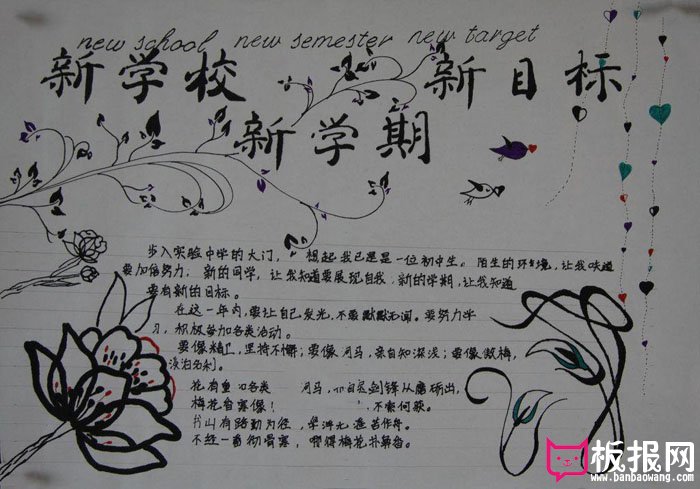 new school new semester new target
新学校 新目标
新学期
步入实验中学的大门，想起我已是一位初中生。陌生的环境，让我知道
要加倍努力；新的同学，让我知道要展现自我，新的学期，让我知道
要有新的目标。
在这一年内，要让自己发光，不要默默无闻。要努力学
习，积极参加各类活动。
要像精卫，坚持不懈；要像河马，亲自知深浅；要像傲梅，
淡泊名利。
花有重 各类 河马， 剑锋从磨砺出，
梅花自寒 像！ 不 何获。
书山有路勤为径，学海无涯苦作舟。
不经一番彻骨寒，哪得梅花扑鼻香。
板报网
www.banbaowang.com